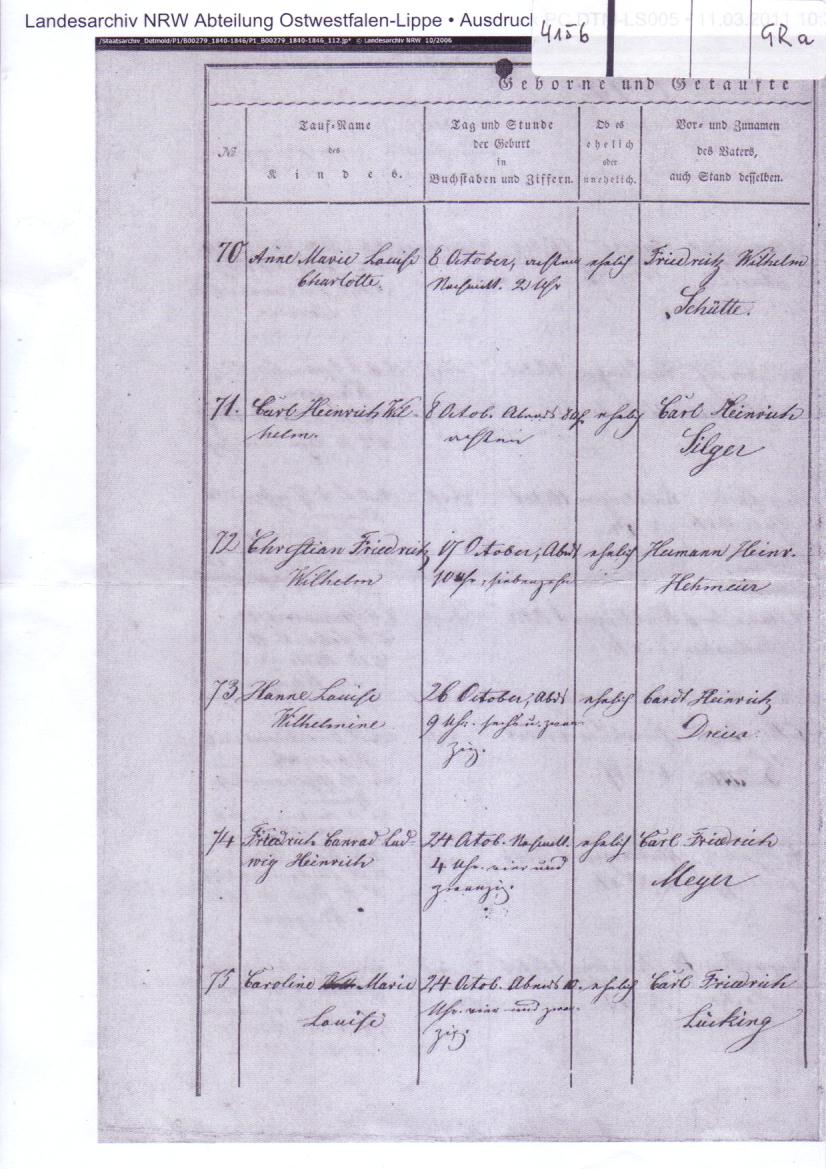 Landesarchiv NRW Abteilung Ostwestfalen-Lippe • Ausdruck PC DTM-LS005 - 11.03.2011 10:
4156 GRa
/Staatsarchiv_Detmold/P1/B00279_1840-1846/P1_B00279_1840-1846_112.jp* © Landesarchiv NRW 10/2006
Geborne und Getaufte
№
Tauf-Name
des
Kindes.
Tag und Stunde
der Geburt
in
Buchstaben und Ziffern.
Ob es
ehelich
oder
unehelich.
Vor- und Zunamen
des Vaters,
auch Stand desselben.
70 Anne Marie Louise 8 October, achten ehelich Friedrich Wilhelm
Charlotte. Nachmitt. 2 Uhr
Schütte.
71. Carl Heinrich Wil- 8 Octob. Abends 8 Uhr ehelich Carl Heinrich
helm. achten Silger
72 Christian Friedrich 17 October, Abds ehelich Hermann Heinr.
Wilhelm 10 Uhr, siebenzehn Hehmeier
73 Hanne Louise 26 October, Abds ehelich Cardt Heinrich
Wilhelmine 9 Uhr. sechs u. zwan-
zig. Dreier
74 Friedrich Conrad Lud- 24 Octob. Nachmitt. ehelich Carl Friedrich
wig Heinrich 4 Uhr. vier und
zwanzig. Meyer
75 Caroline Marie 24 Octob. Abends 10. ehelich Carl Friedrich
Louise Uhr. vier und zwan- Lücking
zig.